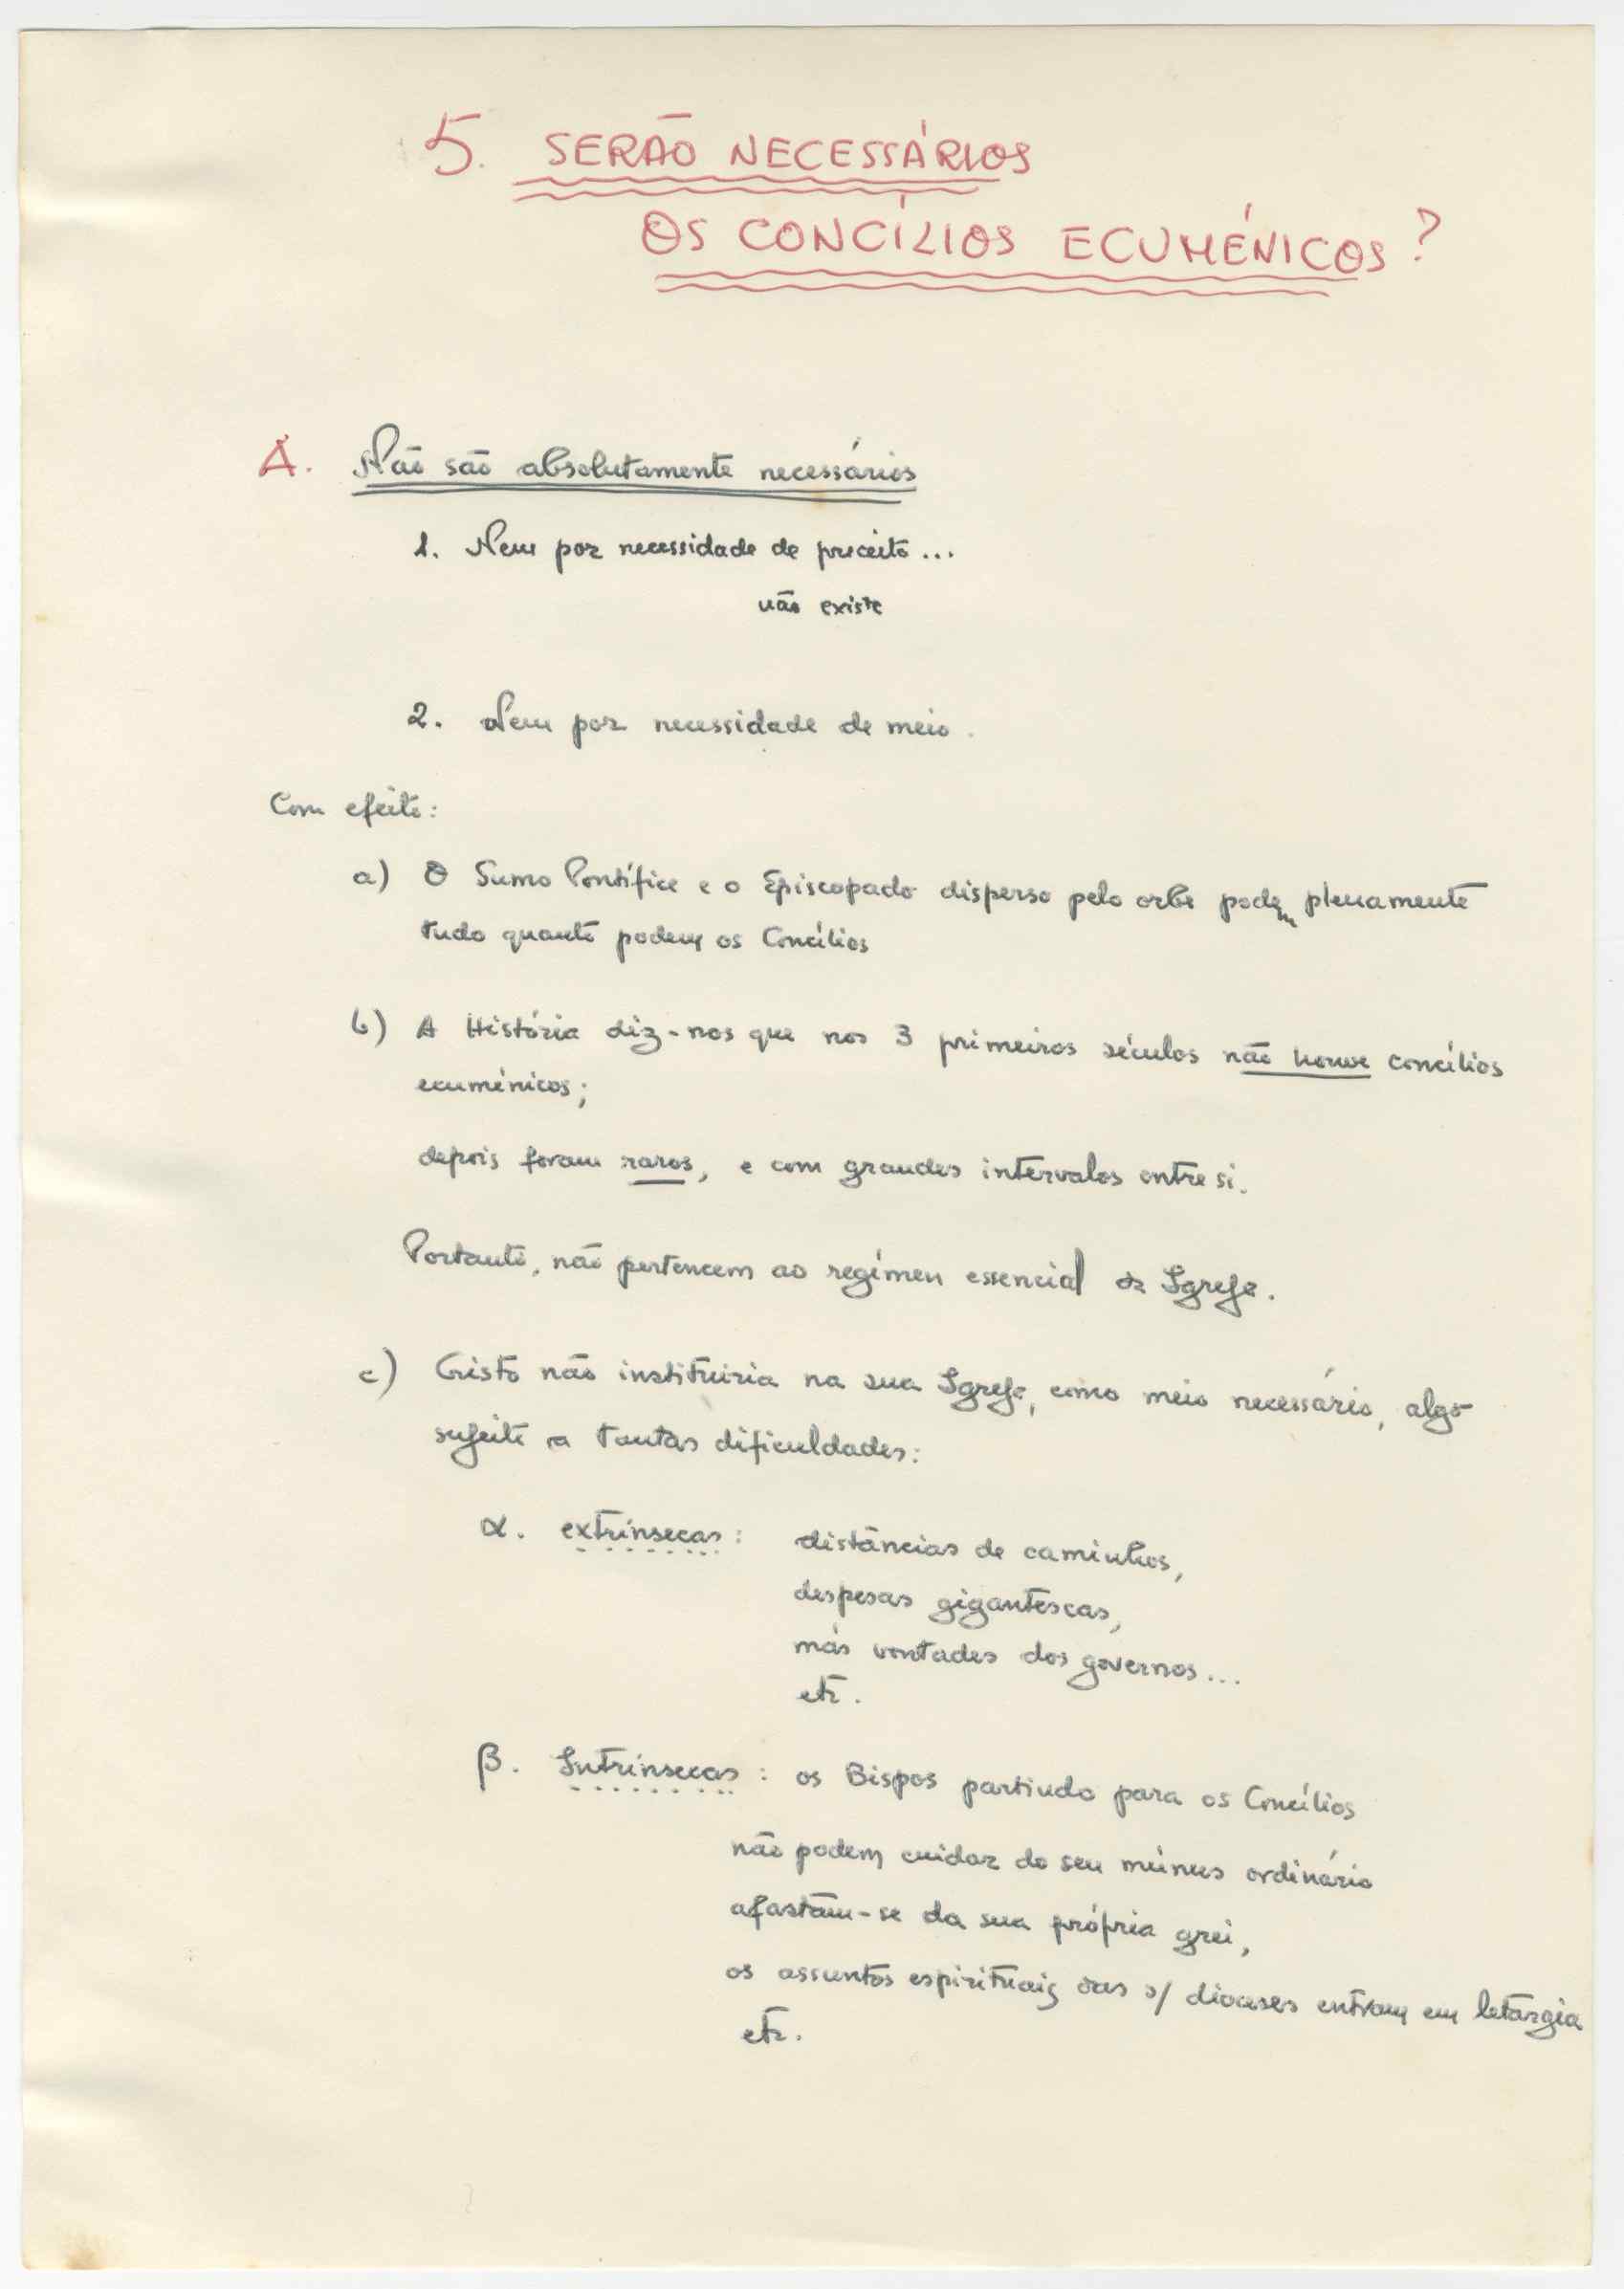 5. SERÃO NECESSÁRIOS
OS CONCÍLIOS ECUMÉNICOS?
A. Não são absolutamente necessários
1. Nem por necessidade de preceito...
não existe
2. Nem por necessidade de meio.
Com efeito:
a) O Sumo Pontífice e o Episcopado disperso pelo orbe podem plenamente
tudo quanto podem os Concílios
b) A História diz-nos que nos 3 primeiros séculos não houve concílios
ecuménicos;
depois foram raros, e com grandes intervalos entre si.
Portanto, não pertencem ao regímen essencial da Igreja.
c) Cristo não instituiria na sua Igreja, como meio necessário, algo
sujeito a tantas dificuldades:
α. extrínsecas: distâncias de caminhos,
despesas gigantescas,
más vontades dos governos...
etc.
β. Intrínsecas: os Bispos partindo para os Concílios
não podem cuidar do seu múnus ordinário
afastam-se da sua própria grei,
os assuntos espirituais das s/ dioceses entram em letargia
etc.